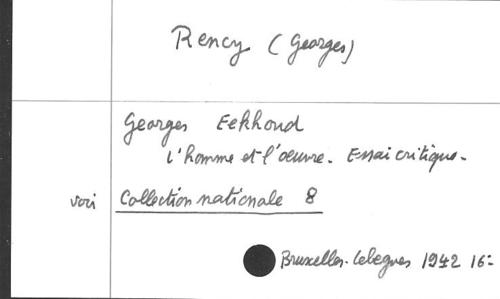 Rency (Georges)
Georges Eekhoud
L'homme et l'oeuvre. Essai critique.
voir Collection nationale 8
Bruxelles. Lebegues 1942 16=